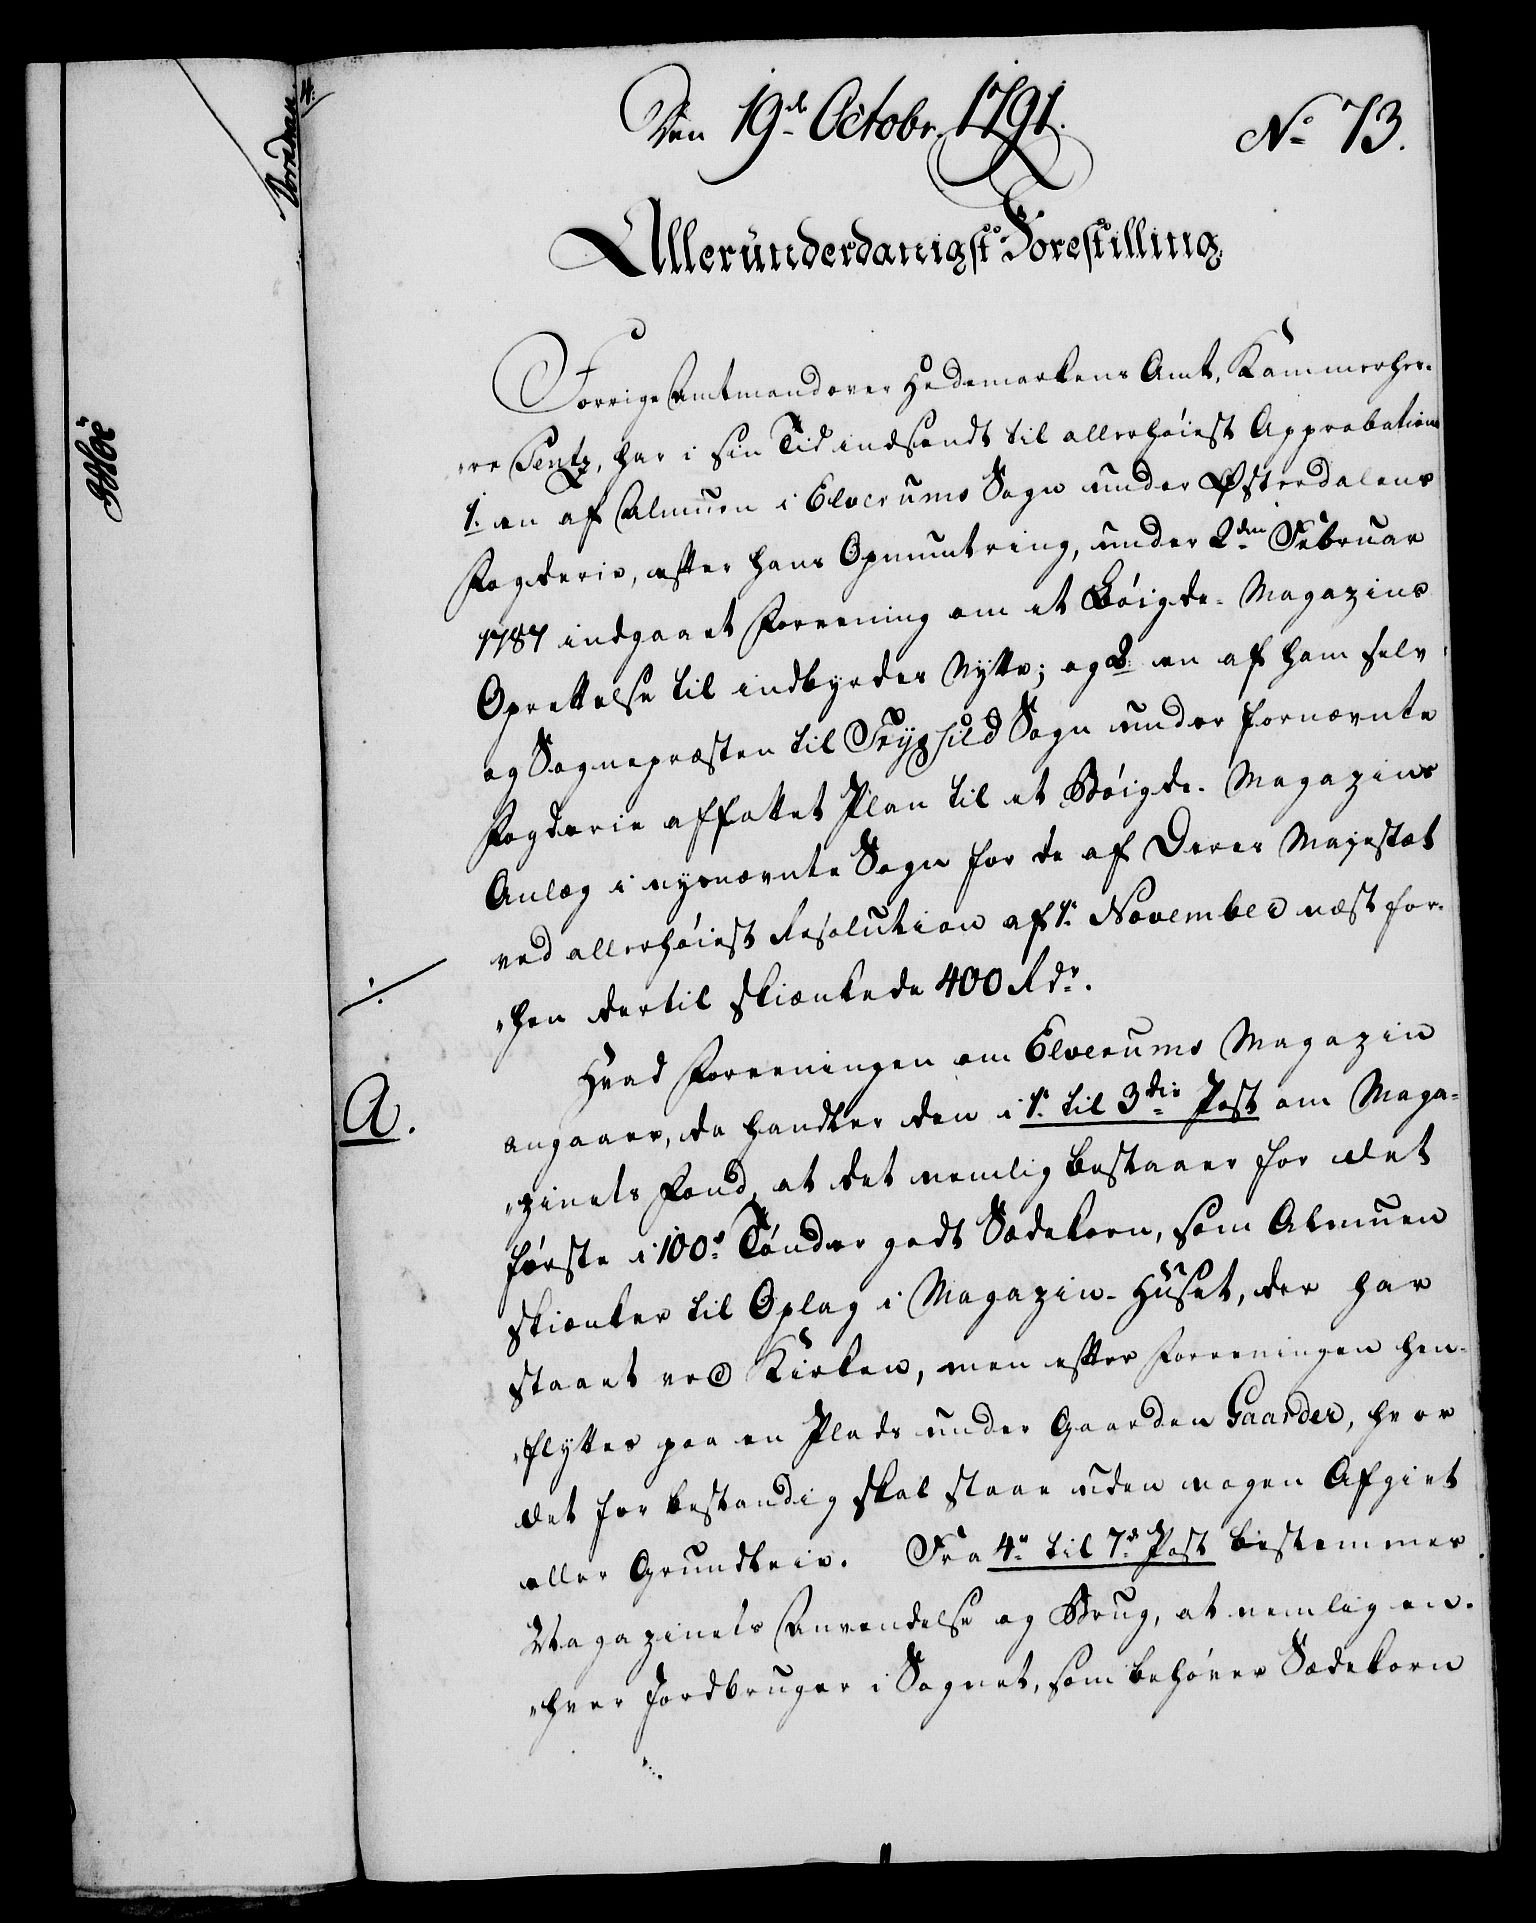 Den 19de Octobr. 1791.
No 73.
Allerunderdanigst Forestilling.
Forrige Amtmand over Hedemarkens Amt, Kammerher-
re Sentz, har i sin Tid indsendt til allerhøiest Approbation
1. en af Almuen i Elverums Sogn under Østerdalens
Fogderie, efter hans Opmuntring, under 2den Februar
1787 indgaaet Foreening om et Bøigde-Magazins
Oprettelse til indbyrdes Nytte; og 2. en af ham selv
og Sognepræsten til Trysild Sogn under fornævnte
Fogderie affattet Plan til et Bøigde-Magazins
Anlæg i nysnævnte Sogn for de af Deres Majestæt
ved allerhøiest Resolution af 1. November næst for-
hen dertil skiænkede 400 Rdr.
A.
Hvad Foreeningen om Elverums Magazin
angaaer, da handler den i 1. til 3die Post om Maga-
zinets Fond, at det nemlig bestaaer for det
første i 100de Tønder godt Sædekorn, som Almuen
skiænker til Oplag i Magazin-Huset, der har
staaet ved Kirken, men efter Foreeningen hen-
flyttes paa en Plads under Gaarden Gaarder, hvor
det for bestandig skal staae uden nogen Afgivt
eller Grundleie. Fra 4de til 7de Post bestemmes
Magazinets Anvendelse og Brug, at nemlig en-
hver Jordbruger i Sognet, som behøver Sædekorn